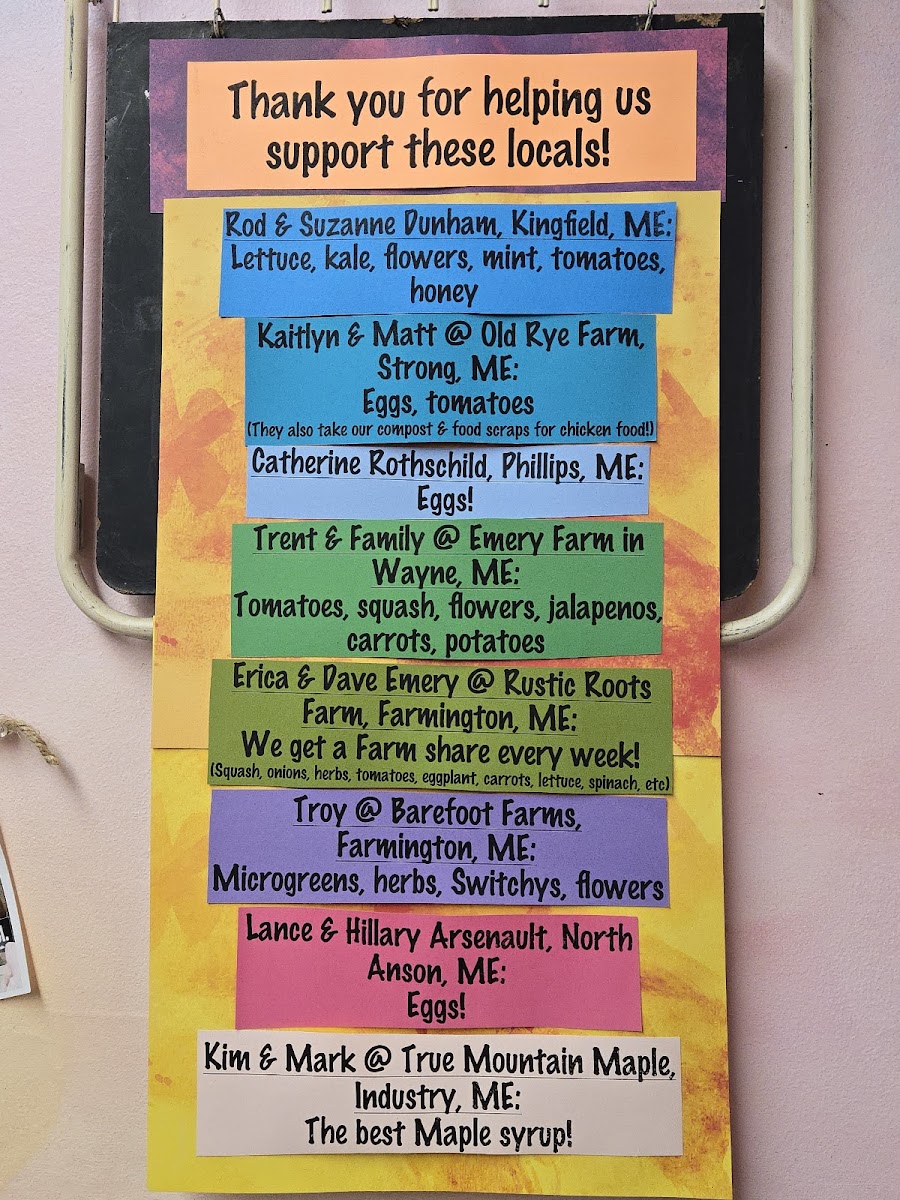 Thank you for helping us
support these locals!
Rod & Suzanne Dunham, Kingfield, ME:
Lettuce, kale, flowers, mint, tomatoes,
honey
Kaitlyn & Matt @ Old Rye Farm,
Strong, ME:
Eggs, tomatoes
(They also take our compost & food scraps for chicken food!)
Catherine Rothschild, Phillips, ME:
Eggs!
Trent & Family @ Emery Farm in
Wayne, ME:
Tomatoes, squash, flowers, jalapenos,
carrots, potatoes
Erica & Dave Emery @ Rustic Roots
Farm, Farmington, ME:
We get a Farm share every week!
(Squash, onions, herbs, tomatoes, eggplant, carrots, lettuce, spinach, etc)
Troy @ Barefoot Farms,
Farmington, ME:
Microgreens, herbs, Switchys, flowers
Lance & Hillary Arsenault, North
Anson, ME:
Eggs!
Kim & Mark @ True Mountain Maple,
Industry, ME:
The best Maple syrup!